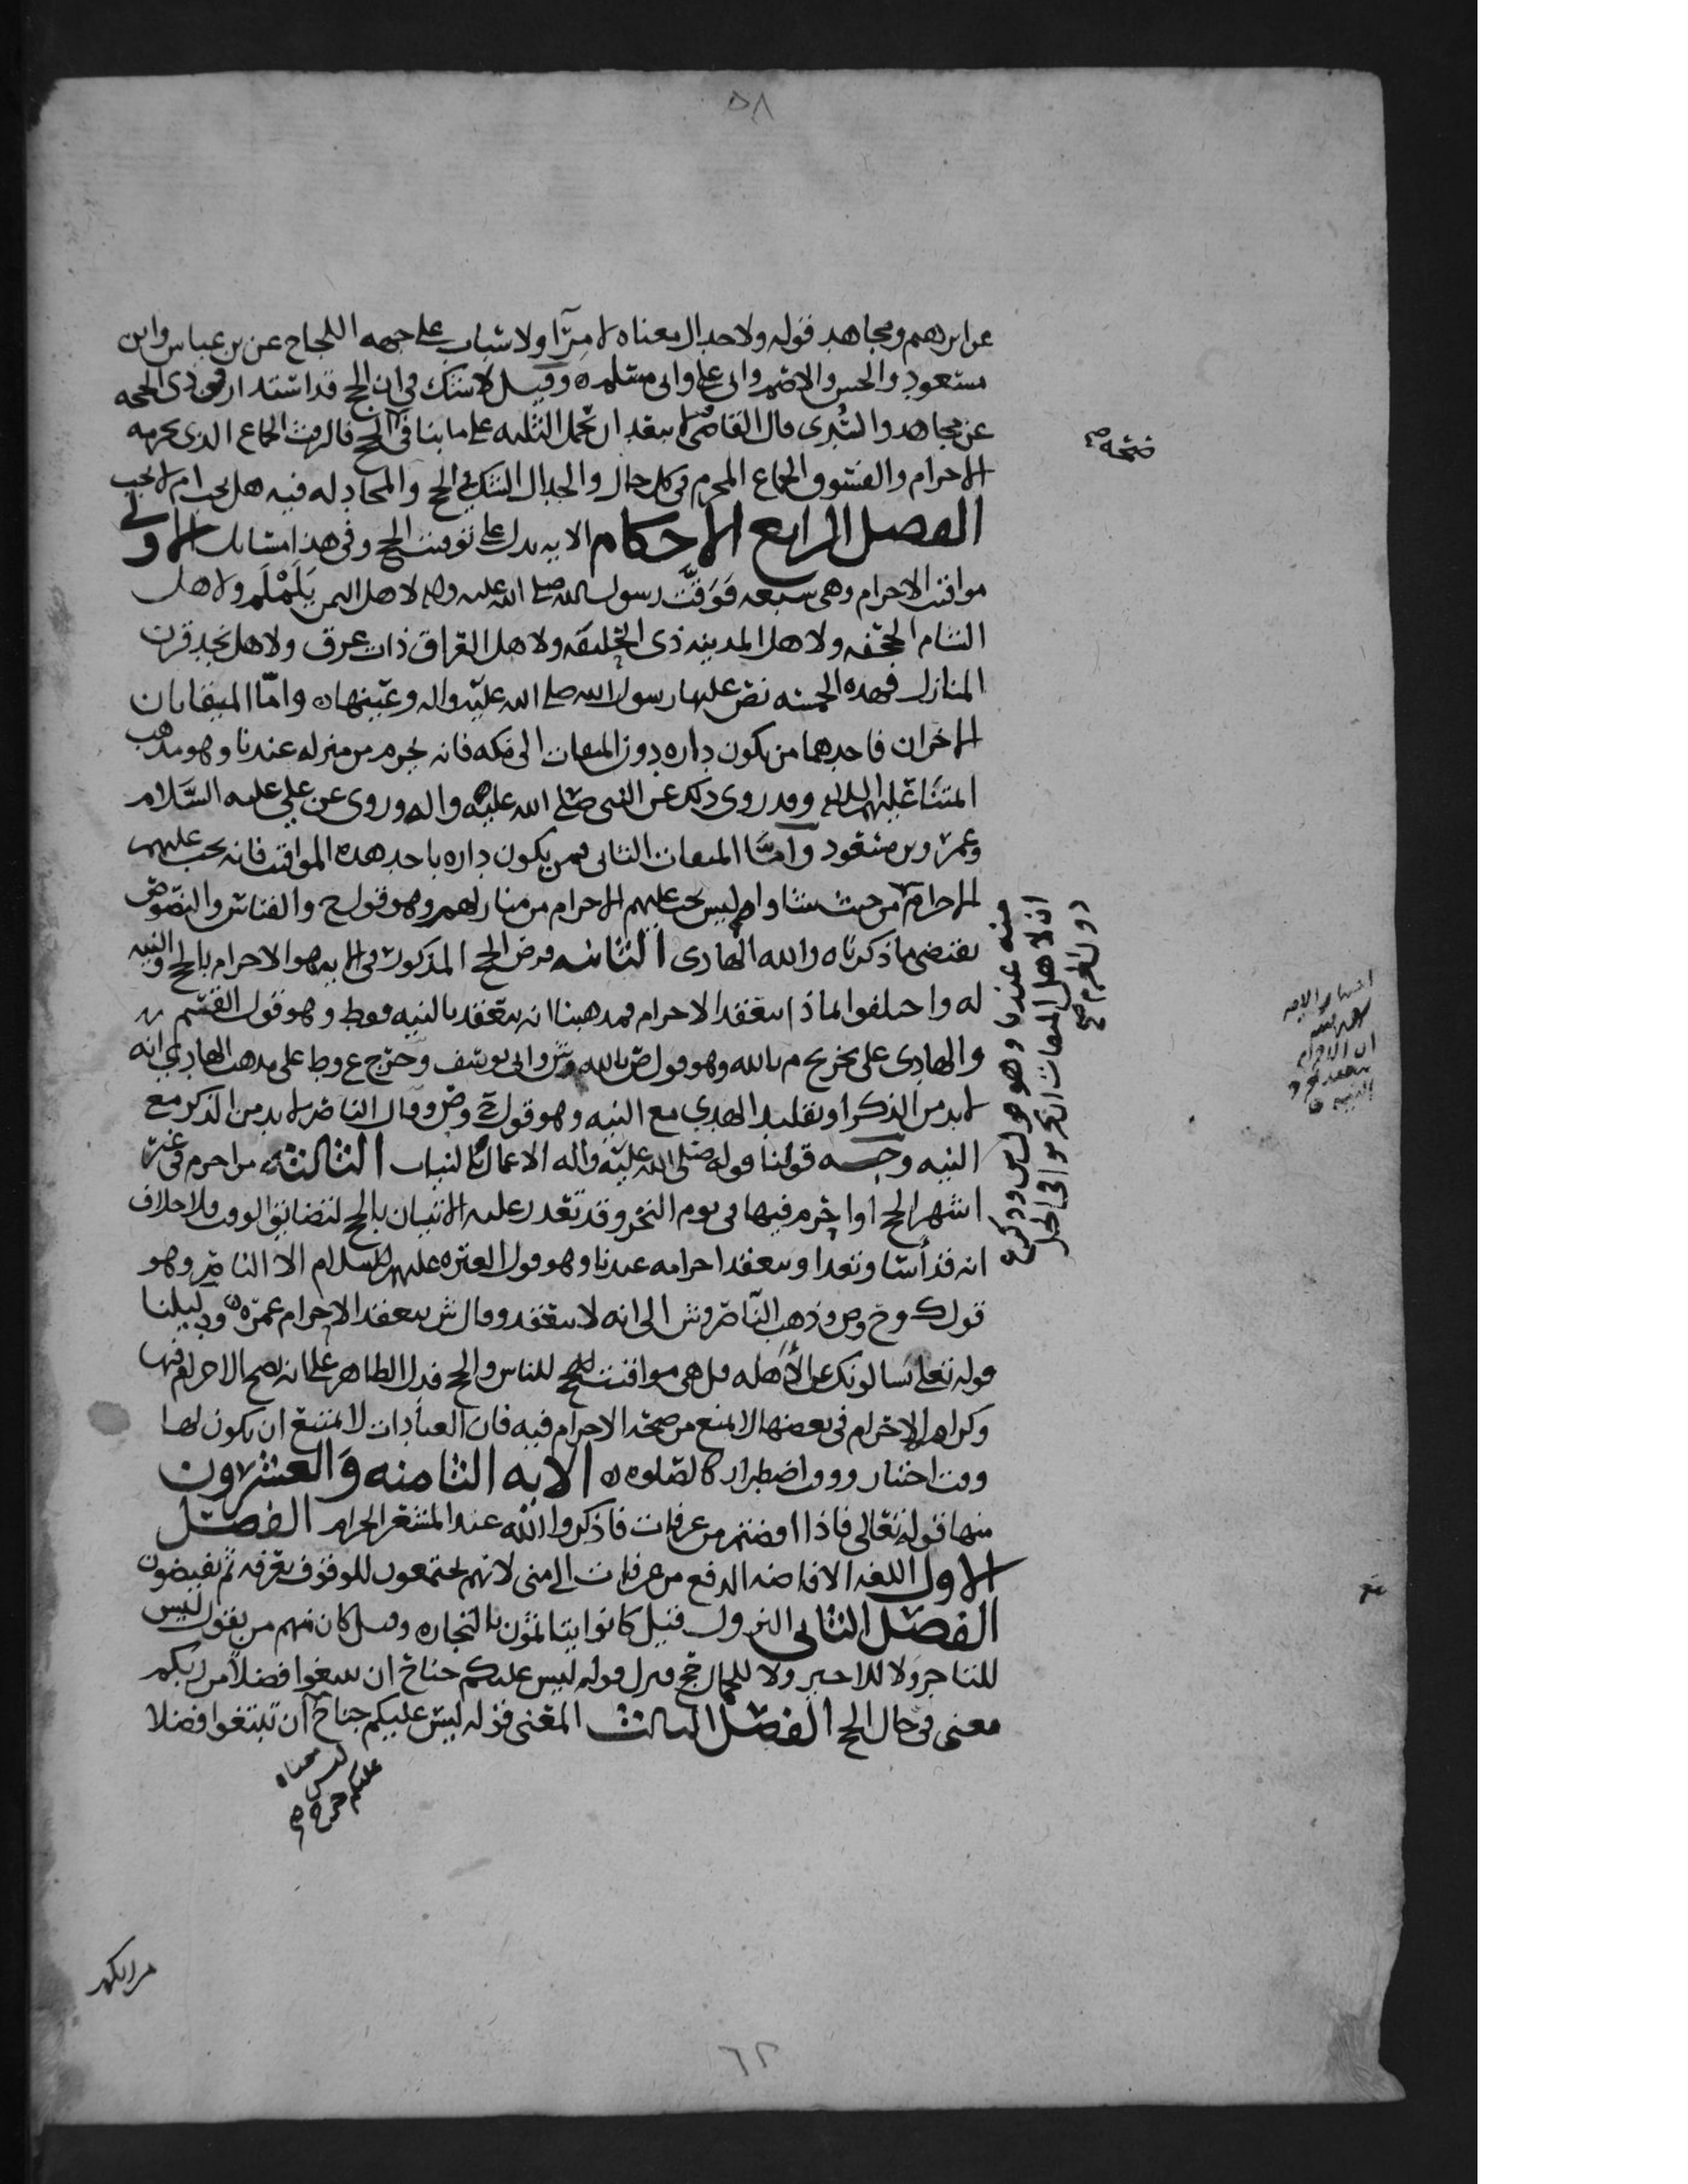 ٥٨
عن ابرهيم ومجاهد قوله ولا جدال معناه لا مِرآ ولا سباب على جهه اللجاج عن بن عباس وابن
مسعود والحسن والاصم وابي علي وابي مسلم ه وقيل لا شك في ان الحج قد استدار في ذي الحجه
عن مجاهد والسُدي قال القاضي لا يبعد ان تحمل الثلثه على ما ينافي الحج فالرفث الجماع الذي يحرمه
الاحرام والفسوق الجماع المحرم في كل حال والجدال الشك في الحج والمجادله فيه هل يجب ام لا يجب
الفصل الرابع الاحكام الايه يدل على توقيت الحج وفي هذا مسائل الاولى
مواقيت الاحرام وهي سبعه فوَقّت رسول الله صلى الله عليه واله لاهل اليمن يَلَمْلَم ولاهل
الشام الجحفه ولاهل المدينه ذي الحليفه ولاهل العراق ذات عرق ولاهل نجد قرن
المنازل فهذه الخمسه نص عليها رسول الله صلى الله عليه واله وعينها ه وامّا الميقاتان
الاخران فاحدهما من يكون داره دون الميقات الى مكه فانه يحرم من منزله عندنا وهو مذهب
وقد روي ذلك عن النبي صلى الله عليه واله وروي عن علي عليه السّلام
وعمر وبن مسعود وأمّا الميقات الثاني فمن يكون داره باحد هذه المواقيت فانه يجب عليهم
الاحرام من حيث شاوا وليس يجب عليهم الاحرام من منازلهم وهو قول ح والقياس والنصوص
يقتضي ما ذكرناه والله الهادي الثانيه فرض الحج المذكور في الايه هو الاحرام بالحج والنيه
له واختلفوا لماذا ينعقد الاحرام فمذهبنا انه ينعقد بالنيه فقط وهو قول القسم
والهادي على تخريج م بالله وهو قول ص بالله وش وابي يوسف وخرج ع وط على مذهب الهادي انه
لا بد من الذكر او تقليد الهدي مع النيه وهو قول ح وض وقال الناصر لا بد من الذكر مع
النيه وجه قولنا قوله صلى الله عليه واله الاعمال بالنيات الثالثه من احرم في غير
اشهر الحج او احرم فيها في يوم النحر وقد تعذر عليه الاتيان بالحج لتضايق الوقت فلا خلاف
انه قد أسا وتعدا وينعقد احرامه عندنا وهو قول العتره عليهم السلام الا الناصر وهو
قول ك وح وص وذهب النّاصر وش الى انه لا ينعقد وقال ش ينعقد الاحرام عمرة ه ودليلنا
قوله تعلى يسالونك عن الأهله قل هي مواقيت للناس والحج فدل الظاهر على انه يصح الاحرام فيها
وكراهه الاحرام في بعضها لا يمنع من صحة الاحرام فيه فان العبادات لا يمتنع ان يكون لها
وقت اختيار ووقت اضطرار كالصلوه ه الايه الثامنه وَالعشرون
منها قوله تعالى فاذا افضتم من عرفات فاذكروا الله عند المشعر الحرام الفصل
الاول اللغه الافاضه الدفع من عرفات الى منى لانهم يجتمعون للوقوف بعرفه ثم يفيضون
الفصل الثاني النزول قيل كانوا يتاثمون بالتجاره وقيل كان منهم من يقول ليس
للتاجر ولا للاجير ولا للجمال حج فنزل قوله ليس عليكم جناح ان تبتغوا فضلاً من ربكم
معنى في حال الحج الفصل الثالث المعنى قوله ليس عليكم جناح أن تبتغوا فضلا
معناه ليس
عليكم حرج
من ربكم
٦٢